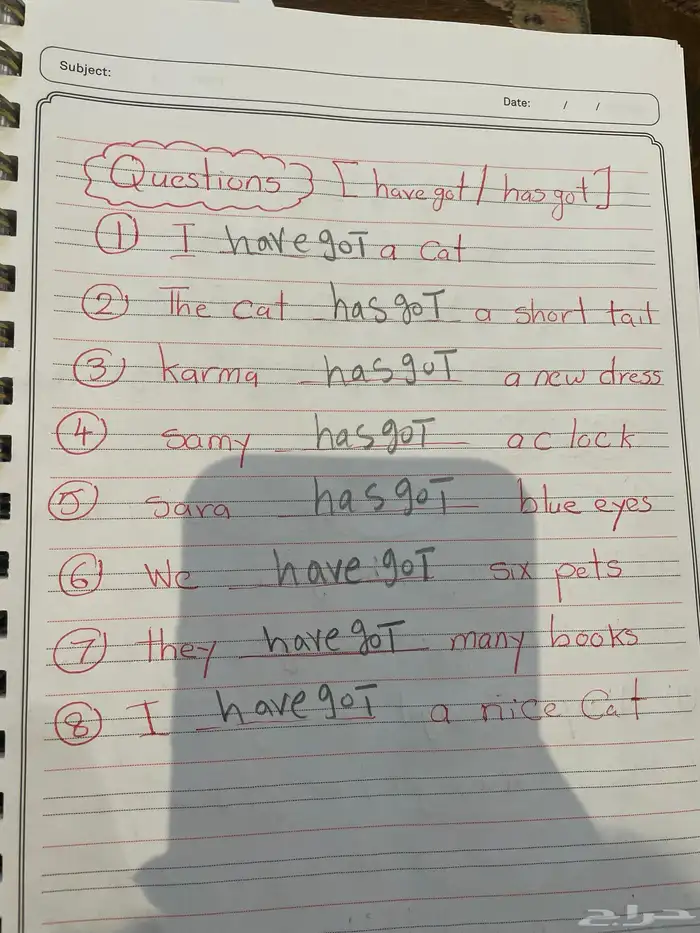 Subject:
Date: / /
Questions [have got / has got]
① I have got a cat
② The cat has got a short tail
③ karma has got a new dress
④ samy has got a clock
⑤ sara has got blue eyes
⑥ We have got six pets
⑦ they have got many books
⑧ I have got a nice Cat
حراج